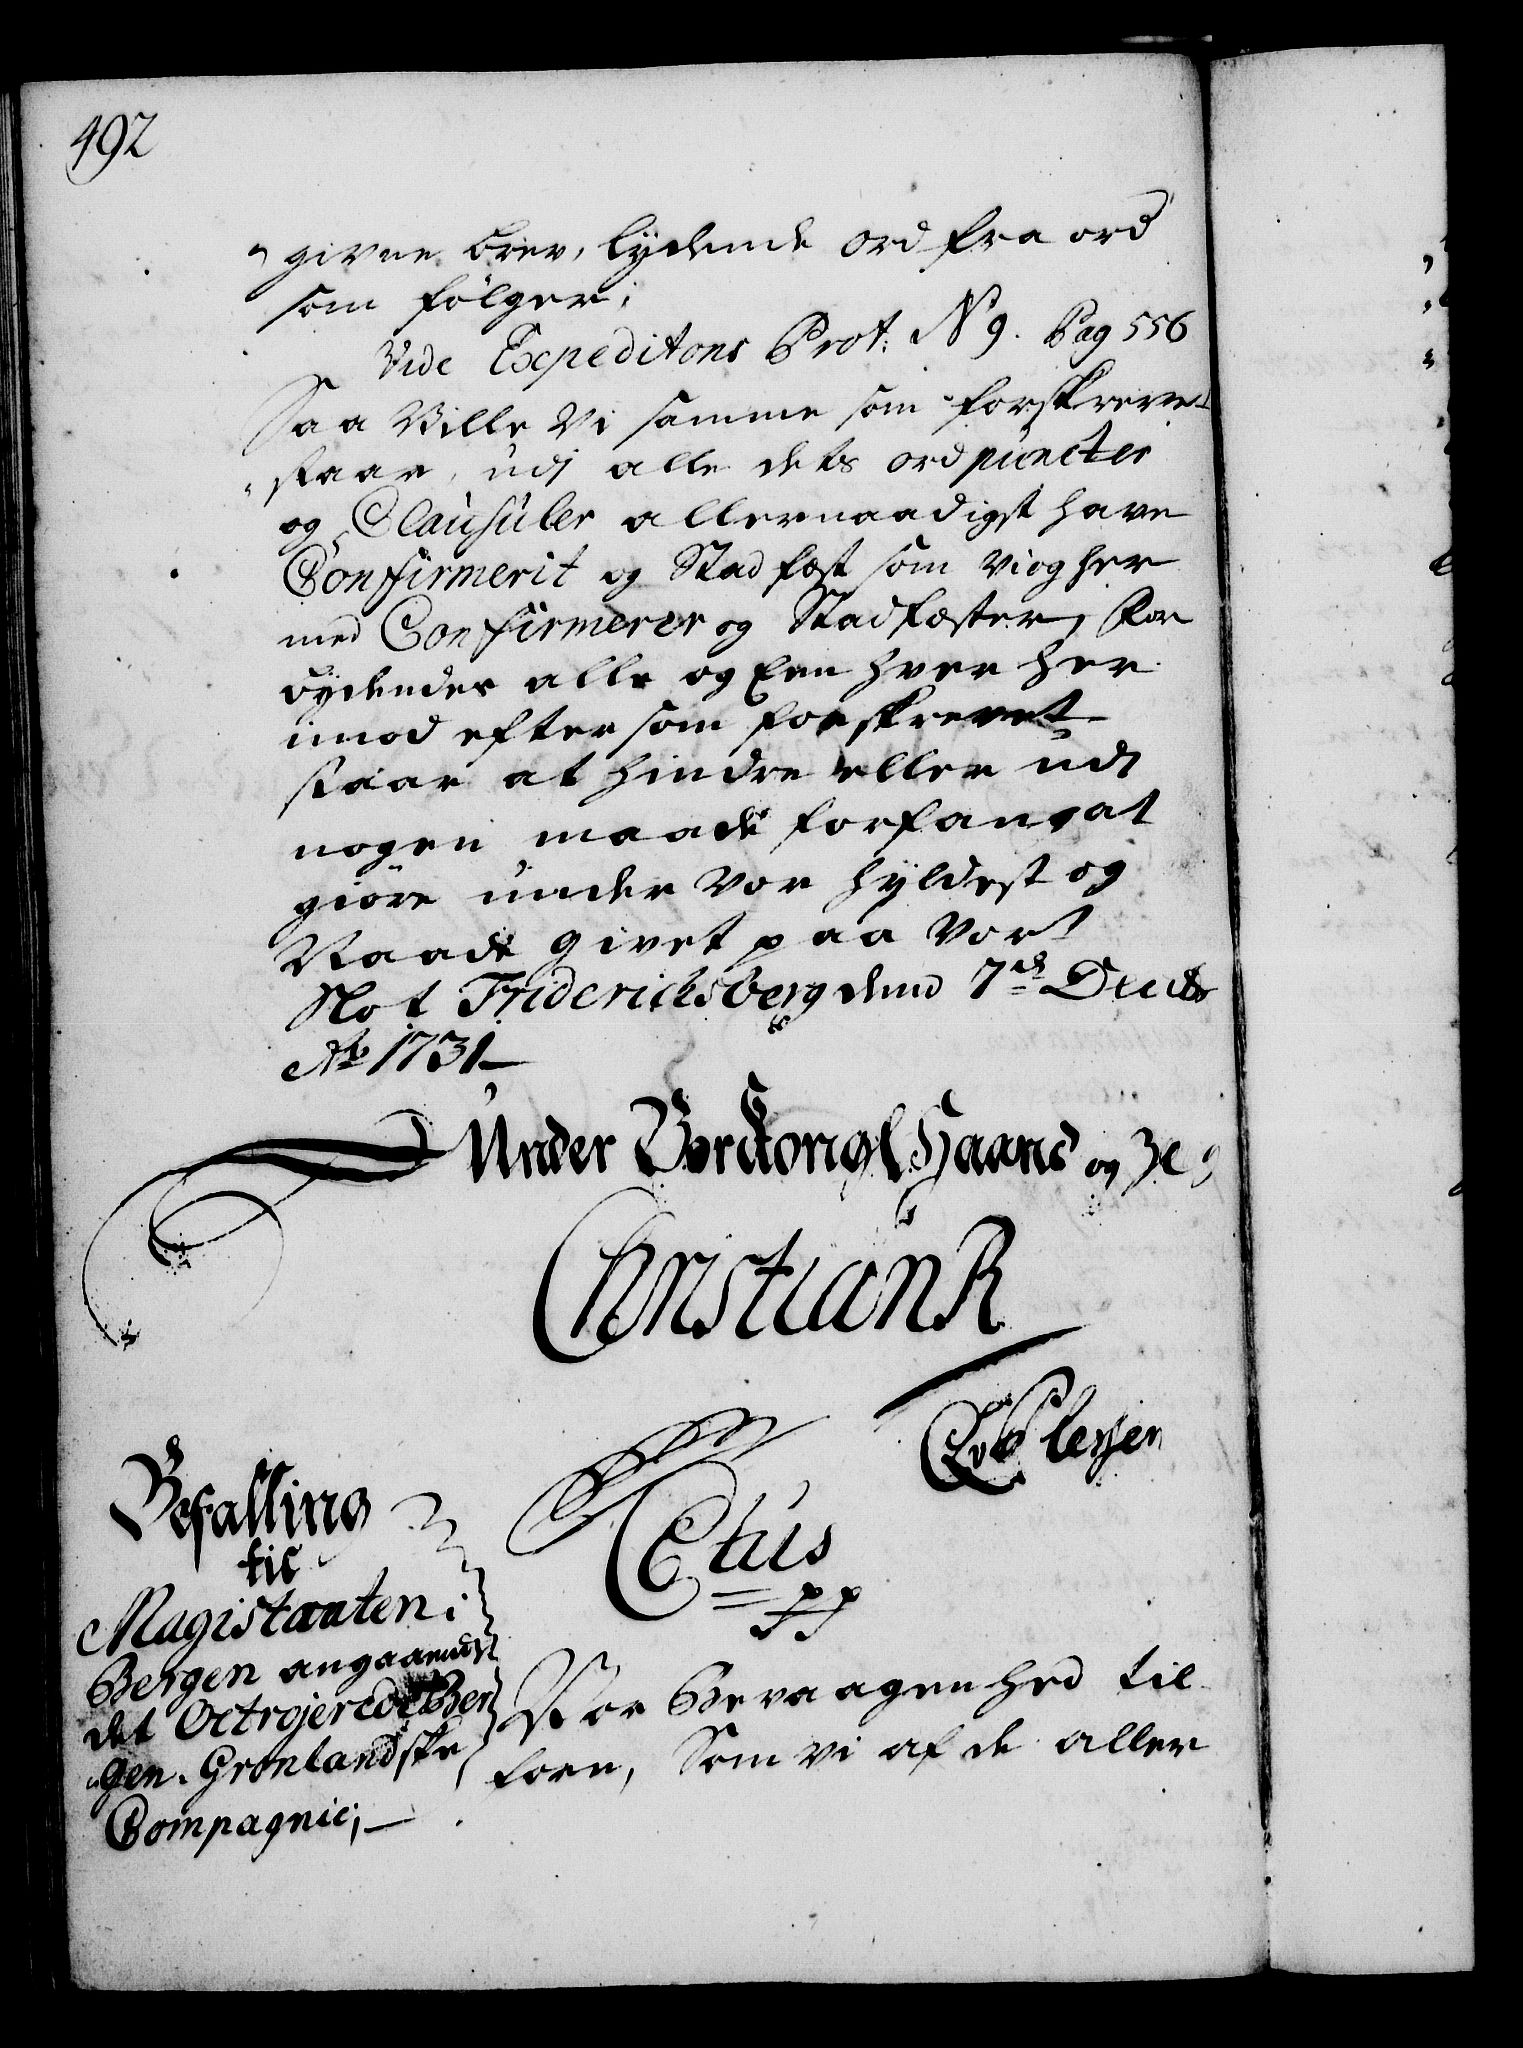 492
givne brev, lydende ord fra ord
som følger;
Vide Expeditons Prot: No 9. Pag 556
Saa Ville Vi samme som forskrevet
staar, udj alle dets ord puncter
og Clausuler allernaadigst have
Confirmerit og Stadfæst som vi og her
med Confirmerer og Stadfæster, For
bydendes alle og Een hver her
imod eftersom forskrevet
staar at hindre eller udj
nogen maade forfang at
giöre under Vor hyldest og
Naade givet paa Vort
Slot Friderichsberg dend 7de Decbr
Ao 1731
Under Vor Kongl Haand og Ze
Christian R
CvPlessen
Befalling
til
Magistraten i
Bergen angaaende
det Octrojerede Ber
gen. Grønlandske
Compagnie;
C6tus
pp
Vor Bevaagenhed til
forn, Som vi af de aller